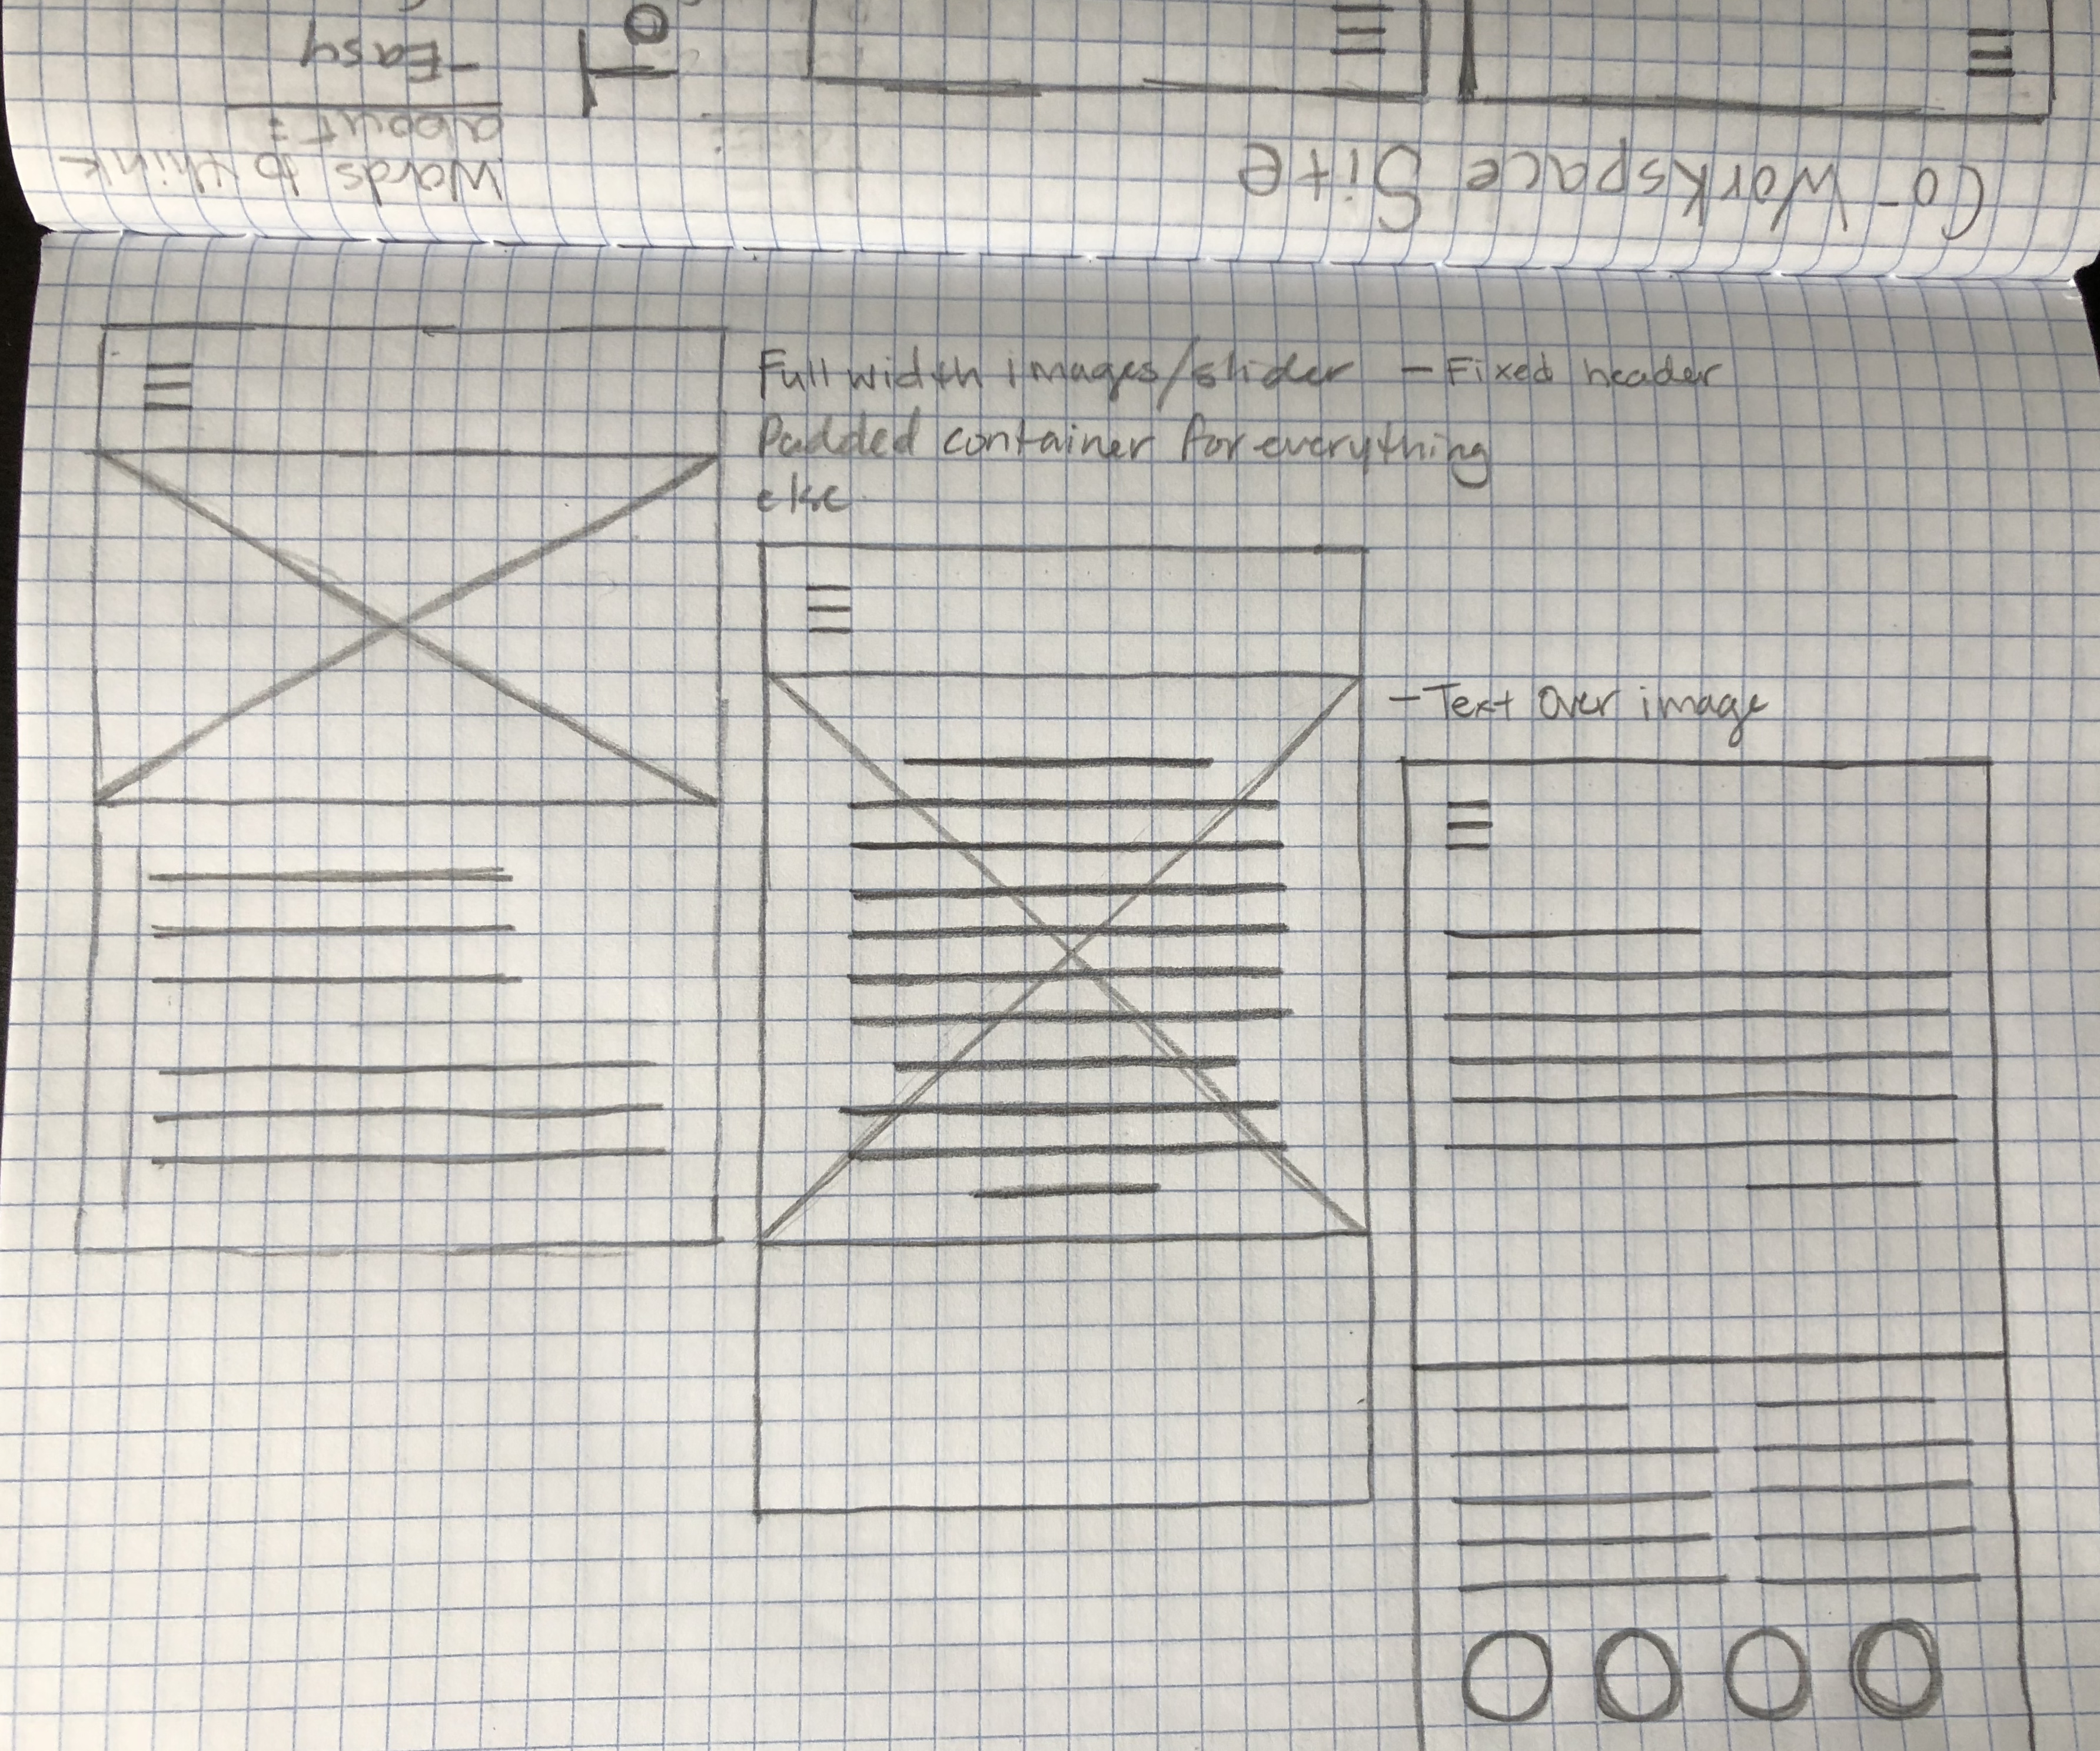 Co-Workspace Site
Words to think
about:
-Easy
Full width images/slider - Fixed header
Padded container for everything
else
- Text Over image